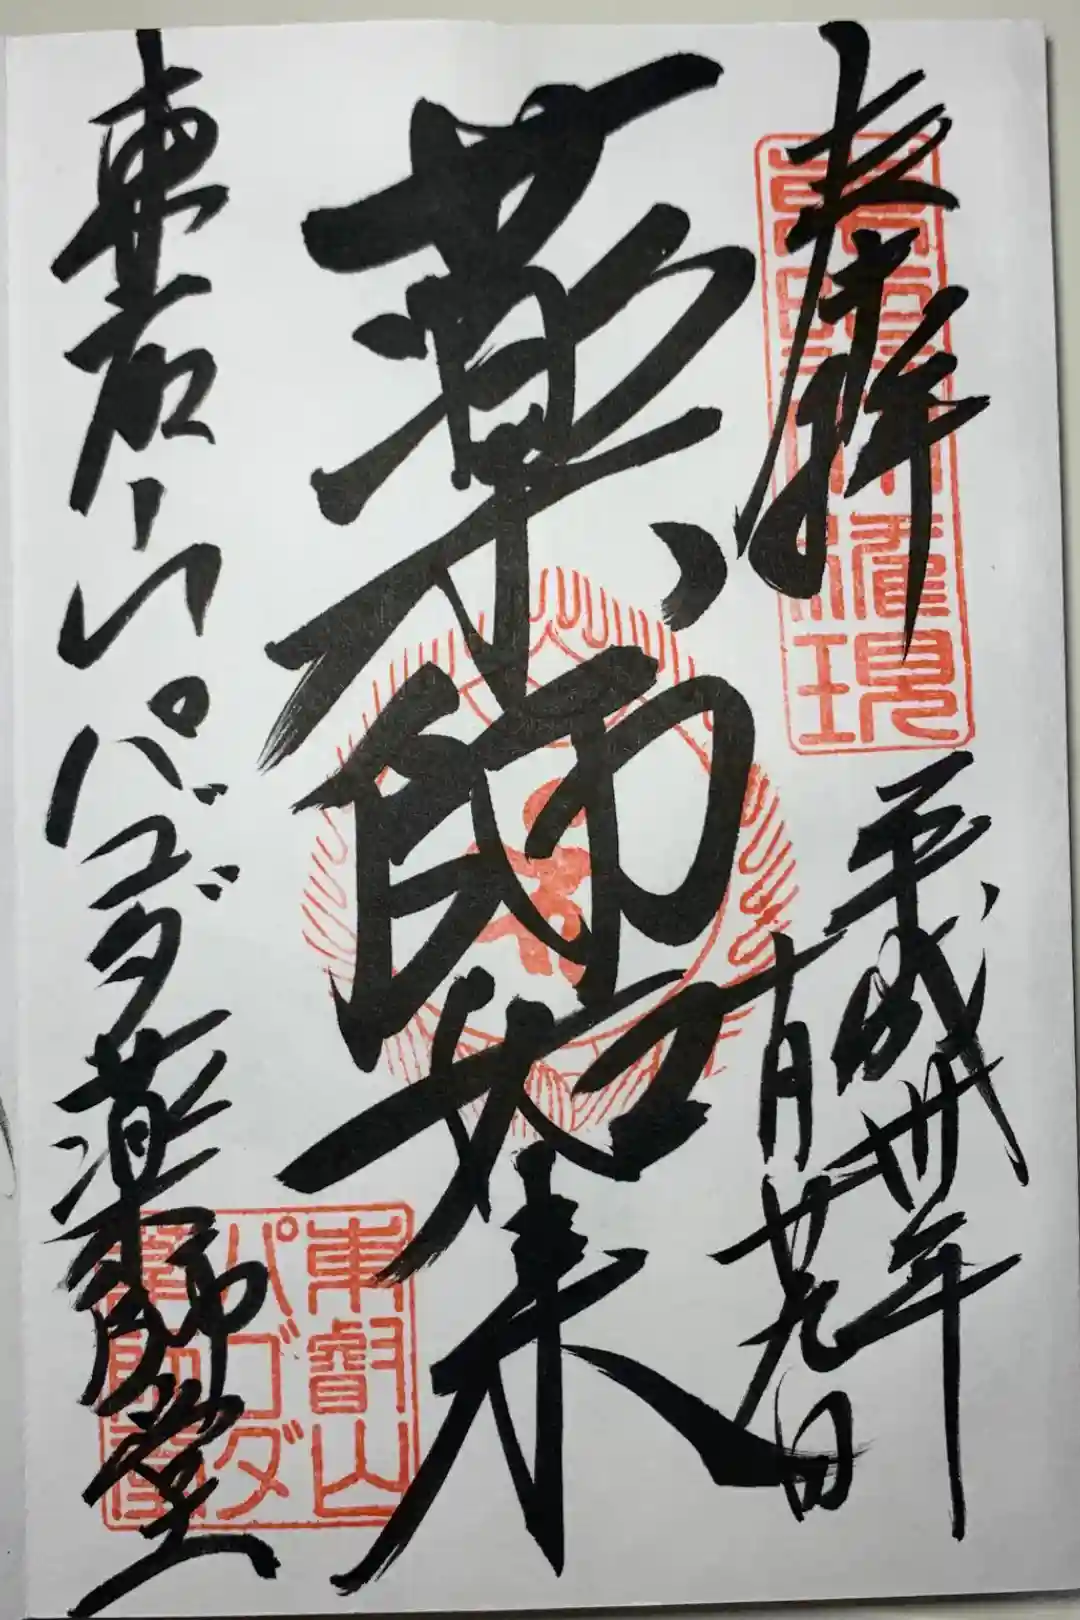 奉拝
平成卅年
十月廿九日
薬師如来
東叡山パゴダ薬師堂
權現
東叡山
パゴダ
薬師堂